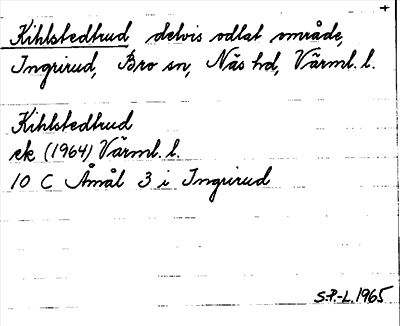 +
Kihlstedtrud delvis odlat område,
Ingrirud, Bro sn, Näs hd, Värml. l.
Kihlstedtrud
ek (1964) Värml. l.
10 C Åmål 3 i Ingrirud
S.P.-L. 1965